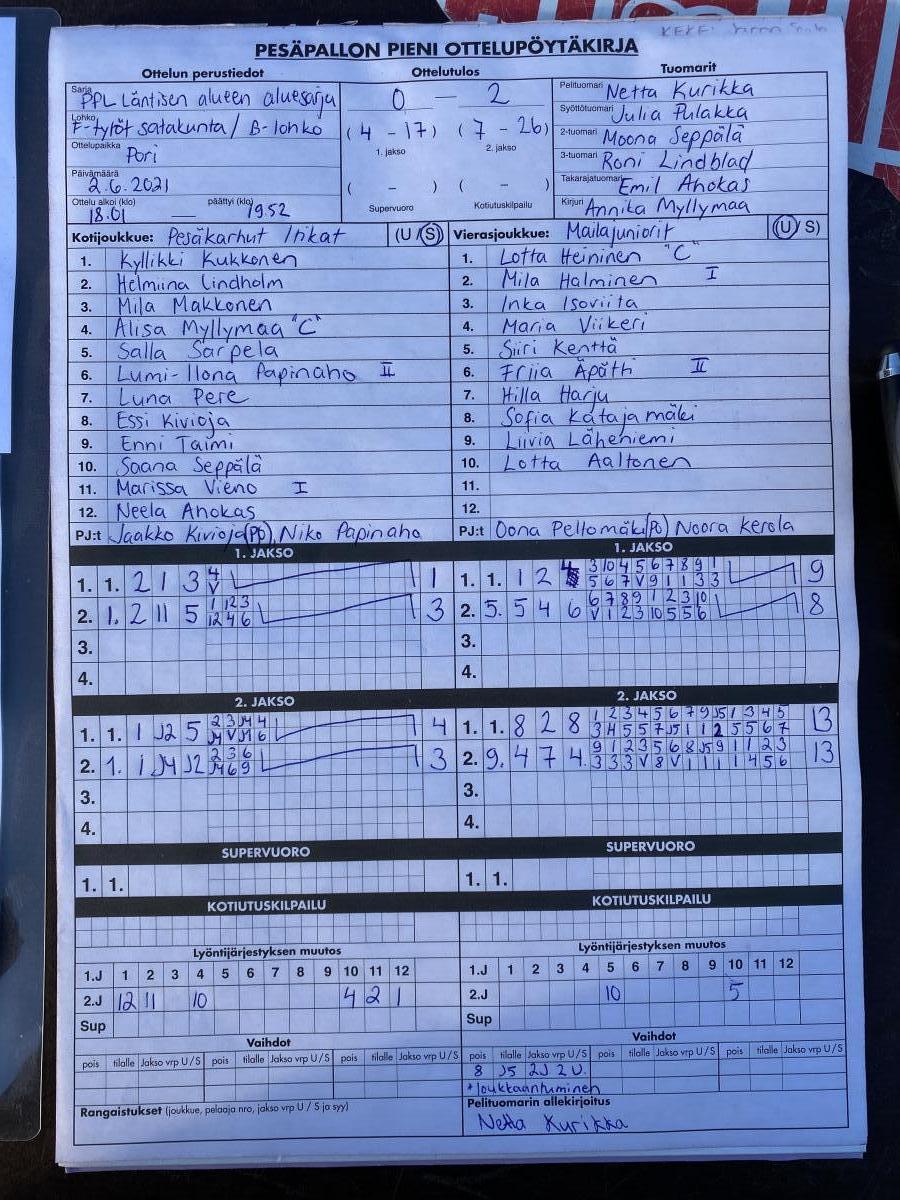 PESÄPALLON PIENI OTTELUPÖYTÄKIRJA
Ottelun perustiedot Ottelutulos Tuomarit
Sarja PPL Läntisen alueen aluesarja 0 — 2 Pelituomari Netta Kurikka
Lohko F-tytöt satakunta / B-lohko (4 - 17) (7 - 26) Syöttötuomari Julia Pulakka
1. jakso 2. jakso 2-tuomari Moona Seppälä
Ottelupaikka Pori 3-tuomari Roni Lindblad
Päivämäärä 2.6.2021 ( - ) ( - ) Takarajatuomari Emil Ahokas
Ottelu alkoi (klo) 18.01 — päättyi (klo) 19.52 Supervuoro Kotiutuskilpailu Kirjuri Annika Myllymaa
Kotijoukkue: Pesäkarhut Inkat (U / S) Vierasjoukkue: Mailajuniorit (U / S)
1. Kyllikki Kukkonen 1. Lotta Heininen "C"
2. Helmiina Lindholm 2. Mila Halminen I
3. Mila Makkonen 3. Inka Isoviita
4. Alisa Myllymaa "C" 4. Maria Viikeri
5. Salla Sarpela 5. Siiri Kenttä
6. Lumi-Ilona Papinaho II 6. Friia Äpätti II
7. Luna Pere 7. Hilla Harju
8. Essi Kivioja 8. Sofia Katajamäki
9. Enni Taimi 9. Liivia Läheniemi
10. Saana Seppälä 10. Lotta Aaltonen
11. Marissa Vieno I 11.
12. Neela Ahokas 12.
PJ:t Jaakko Kivioja (PJ), Niko Papinaho PJ:t Oona Peltomäki (PJ) Noora Kerola
1. JAKSO 1. JAKSO
3 10 4 5 6 7 8 9 1
1. 1. 2 1 3 4 V 1 1. 1. 1 2 4 5 6 7 V 9 1 1 3 3 9
1 12 3 6 7 8 9 1 2 3 10
2. 1. 2 11 5 12 4 6 3 2. 5. 5 4 6 V 1 2 3 10 5 5 6 8
3. 3.
4. 4.
2. JAKSO 2. JAKSO
2 3 J4 4 1 2 3 4 5 6 7 9 J5 1 3 4 5
1. 1. 1 J2 5 J4 V J1 6 4 1. 1. 8 2 8 3 4 5 5 7 J5 1 1 2 5 5 6 7 13
2 3 6 9 1 2 3 5 6 8 J5 9 1 1 2 3
2. 1. 1 J4 J2 J4 6 9 3 2. 9. 4 7 4. 3 3 3 V 8 V 1 1 1 1 4 5 6 13
3. 3.
4. 4.
SUPERVUORO SUPERVUORO
1. 1. 1. 1.
KOTIUTUSKILPAILU KOTIUTUSKILPAILU
Lyöntijärjestyksen muutos Lyöntijärjestyksen muutos
1.J 1 2 3 4 5 6 7 8 9 10 11 12 1.J 1 2 3 4 5 6 7 8 9 10 11 12
2.J 12 11 10 4 2 1 2.J 10 5
Sup Sup
Vaihdot Vaihdot
pois tilalle Jakso vrp U/S pois tilalle Jakso vrp U/S pois tilalle Jakso vrp U/S pois tilalle Jakso vrp U/S pois tilalle Jakso vrp U/S pois tilalle Jakso vrp U/S
8 J5 2J 2U.
*loukkaantuminen
Rangaistukset (joukkue, pelaaja nro, jakso vrp U / S ja syy) Pelituomarin allekirjoitus
Netta Kurikka